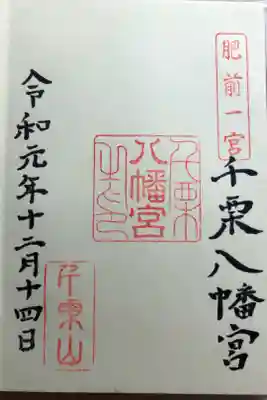 肥前一宮
千栗八幡宮
千栗
八幡宮
之印
千栗山
令和元年十二月十四日